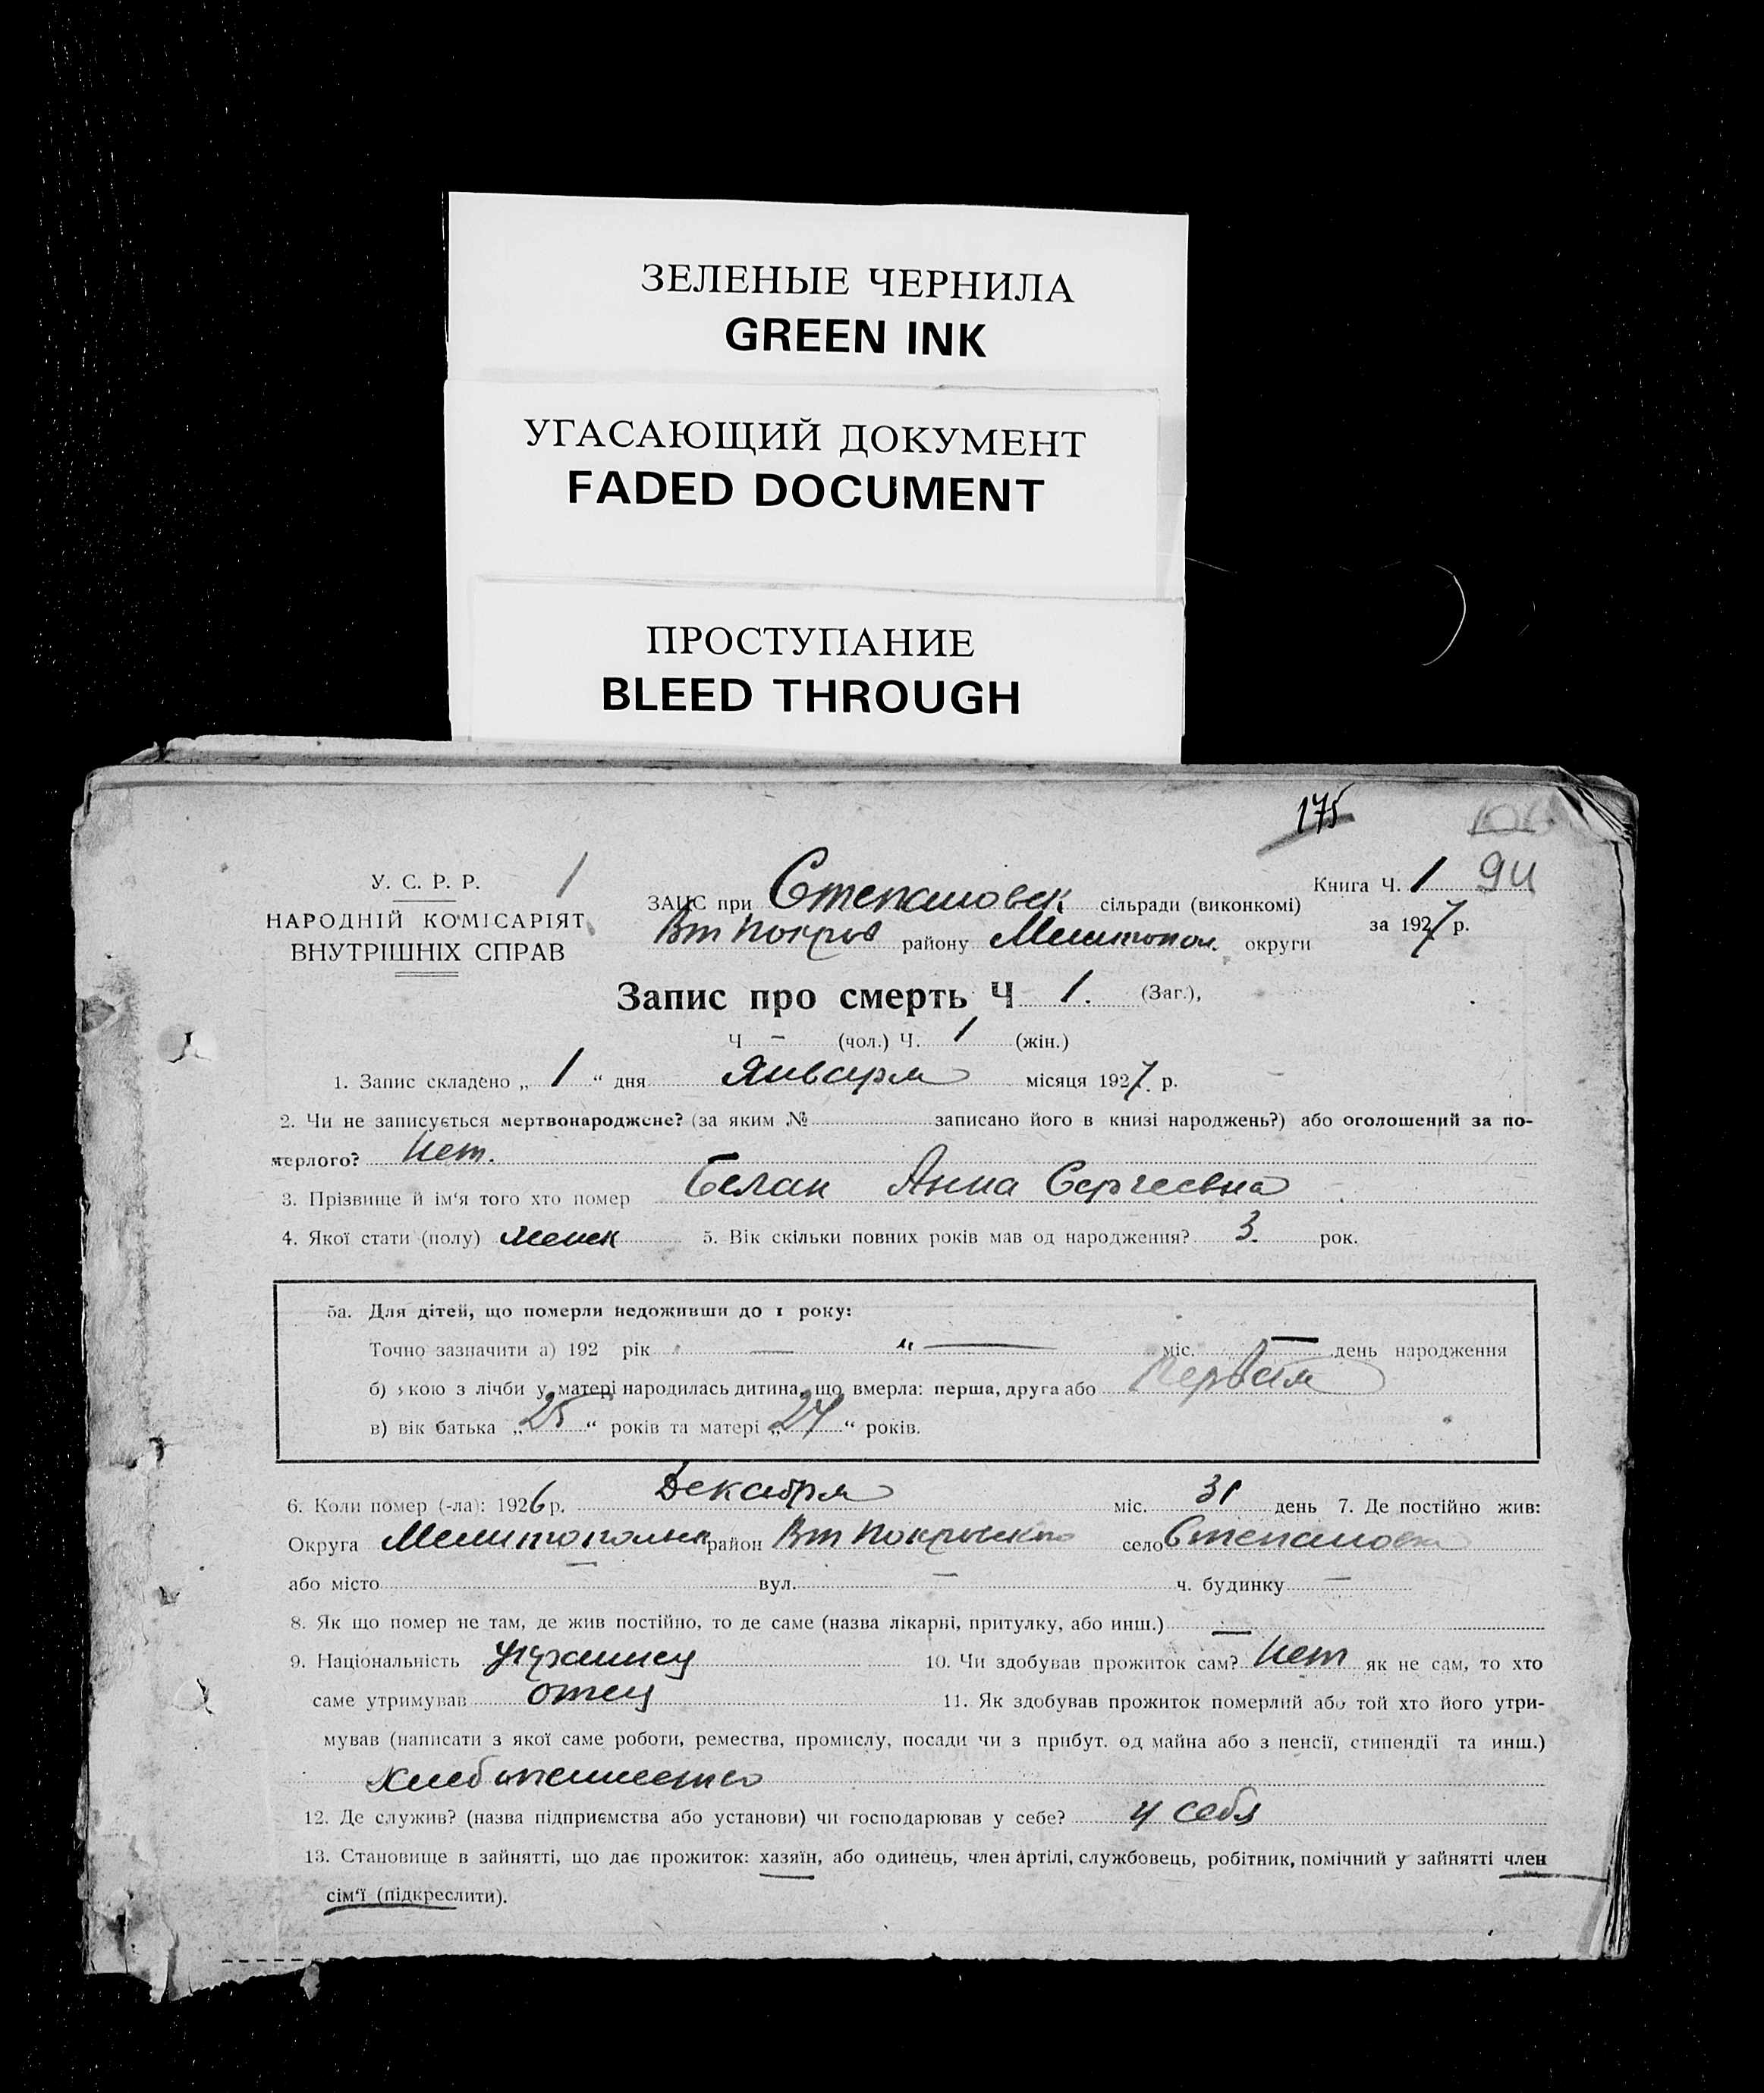 ЗЕЛЕНЫЕ ЧЕРНИЛА
GREEN INK
УГАСАЮЩИЙ ДОКУМЕНТ
FADED DOCUMENT
ПРОСТУПАНИЕ
BLEED THROUGH
175
У. С. Р. Р.
НАРОДНІЙ КОМІСАРІЯТ
ВНУТРІШНІХ СПРАВ
1
ЗАГС при Степановск сільради (виконкомі)
Вт Покров району Мелитопол. округи
Книга Ч. 1 94
за 1927 р.
Запис про смерть Ч 1. (Заг.),
Ч – (чол.) Ч. 1 (жін.)
1. Запис складено „ 1 “ дня Января місяця 1927 р.
2. Чи не записується мертвонароджене? (за яким № записано його в книзі народжень?) або оголошений за по-
мерлого? Нет.
3. Прізвище й ім‘я того хто помер Белан Анна Сергеевна
4. Якої стати (полу) женск 5. Вік скільки повних років мав од народження? 3 рок.
5а. Для дітей, що померли недоживши до 1 року:
Точно зазначити а) 192 рік — „ — міс. — день народження
б) якою з лічби у матері народилась дитина, що вмерла: перша, друга або Первая
в) вік батька „25“ років та матері „24“ років.
6. Коли помер (-ла): 1926 р. Декабря міс. 31 день 7. Де постійно жив:
Округа Мелитопольск район Вт Покровского село Степановка
або місто — вул. — ч. будинку —
8. Як що помер не там, де жив постійно, то де саме (назва лікарні, притулку, або инш.) —
9. Національність украинец 10. Чи здобував прожиток сам? Нет як не сам, то хто
саме утримував отец 11. Як здобував прожиток померлий або той хто його утри-
мував (написати з якої саме роботи, ремества, промислу, посади чи з прибут. од майна або з пенсії, стипендії та инш.)
хлебопашество
12. Де служив? (назва підприємства або установи) чи господарював у себе? у себя
13. Становище в зайнятті, що дає прожиток: хазяїн, або одинець, член артілі, службовець, робітник, помічний у зайнятті член
сім‘ї (підкреслити).